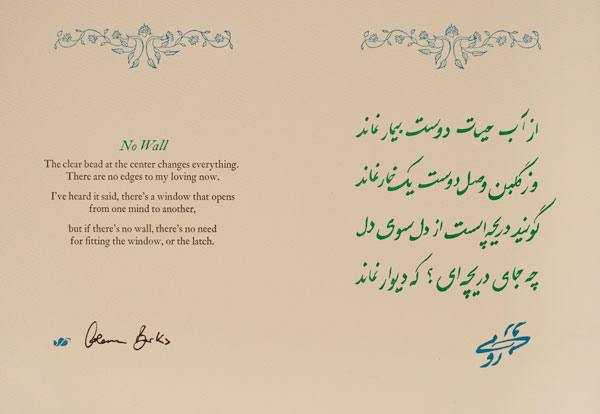 No Wall
The clear bead at the center changes everything.
There are no edges to my loving now.
I've heard it said, there's a window that opens
from one mind to another,
but if there's no wall, there's no need
for fitting the window, or the latch.
Coleman Barks
از آب حیات دوست بیمار نماند
وز گلبن وصل دوست یک خار نماند
گویند دریچه ایست از دل سوی دل
چه جای دریچه ای ؟ که دیوار نماند